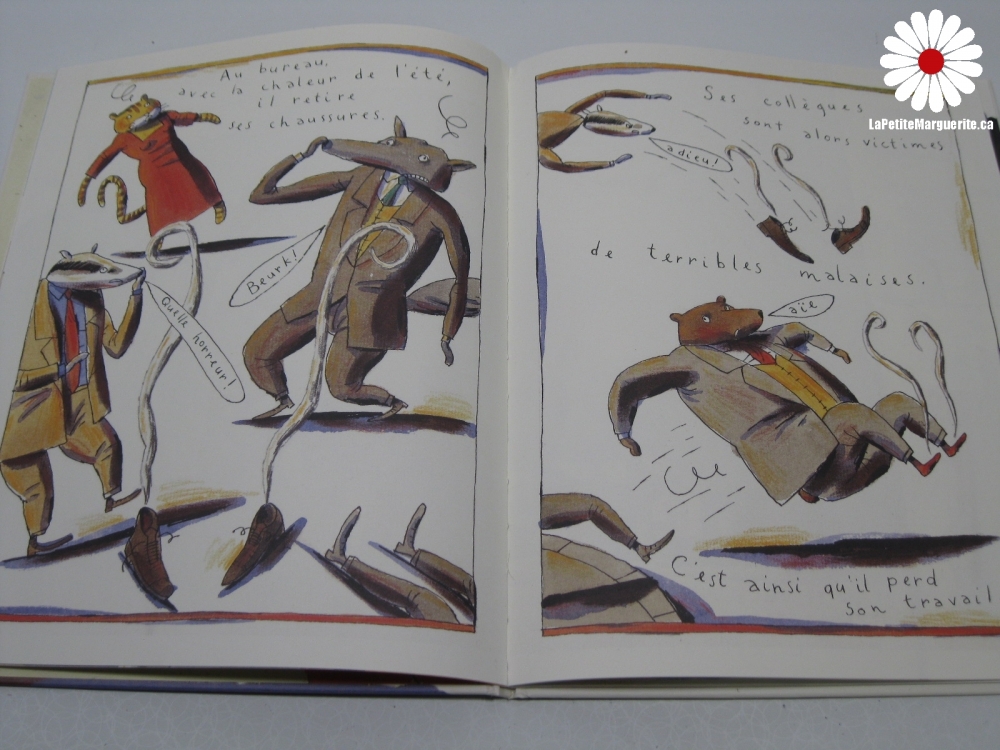 Au bureau,
avec la chaleur de l'été,
il retire
ses chaussures.
Beurk!
Quelle horreur!
Ses collègues
sont alors victimes
adieu!
de terribles malaises.
aïe
C'est ainsi qu'il perd
son travail
LaPetiteMarguerite.ca